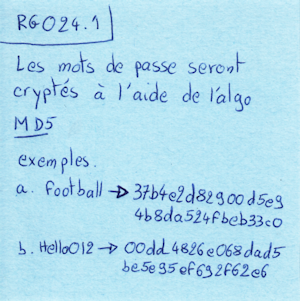 RG024.1
Les mots de passe seront
cryptés à l'aide de l'algo
MD5
exemples.
a. football → 37b4e2d82900d5e9
4b8da524fbeb33c0
b. Hello012 → 00dd4826e068dad5
be5e95ef692f62e6